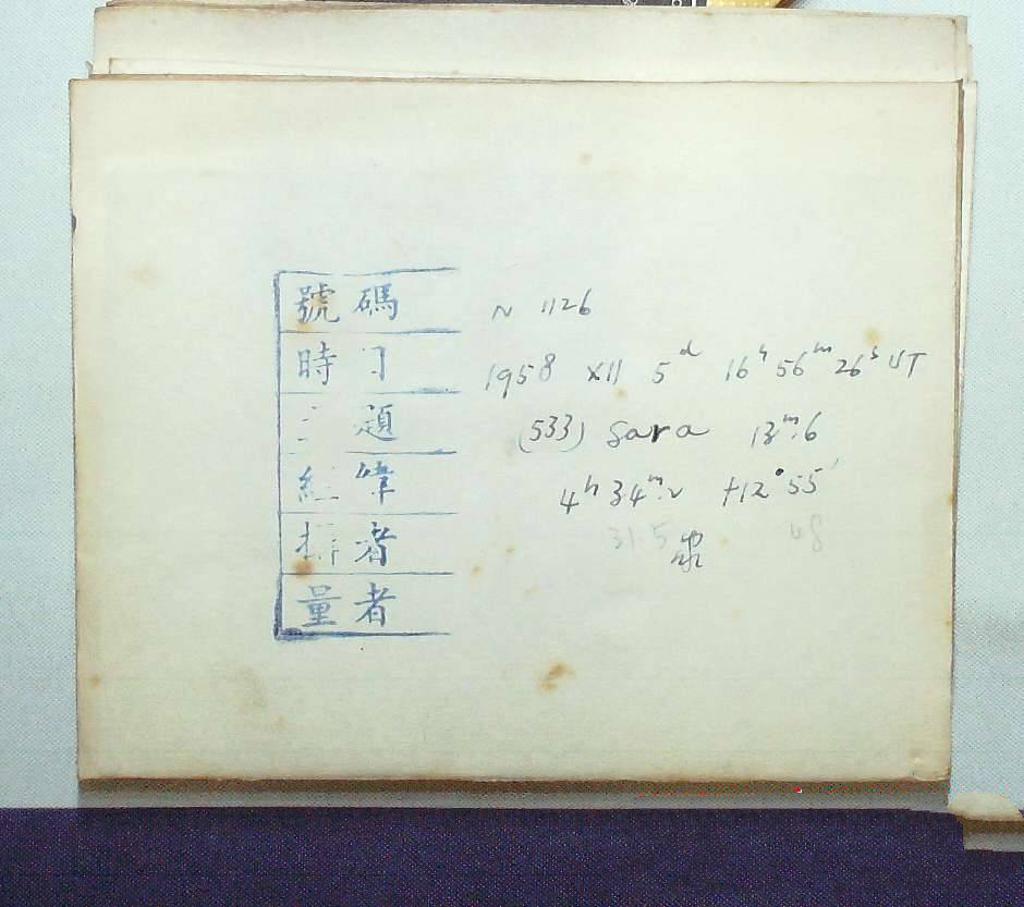 號碼 N 1126
時 1958 XII 5ᵈ 16ʰ 56ᵐ 26ˢ UT
題 (533) Sara 13ᵐ.6
4ʰ 34ᵐ.2 +12°55′
者 31.5 48
量者